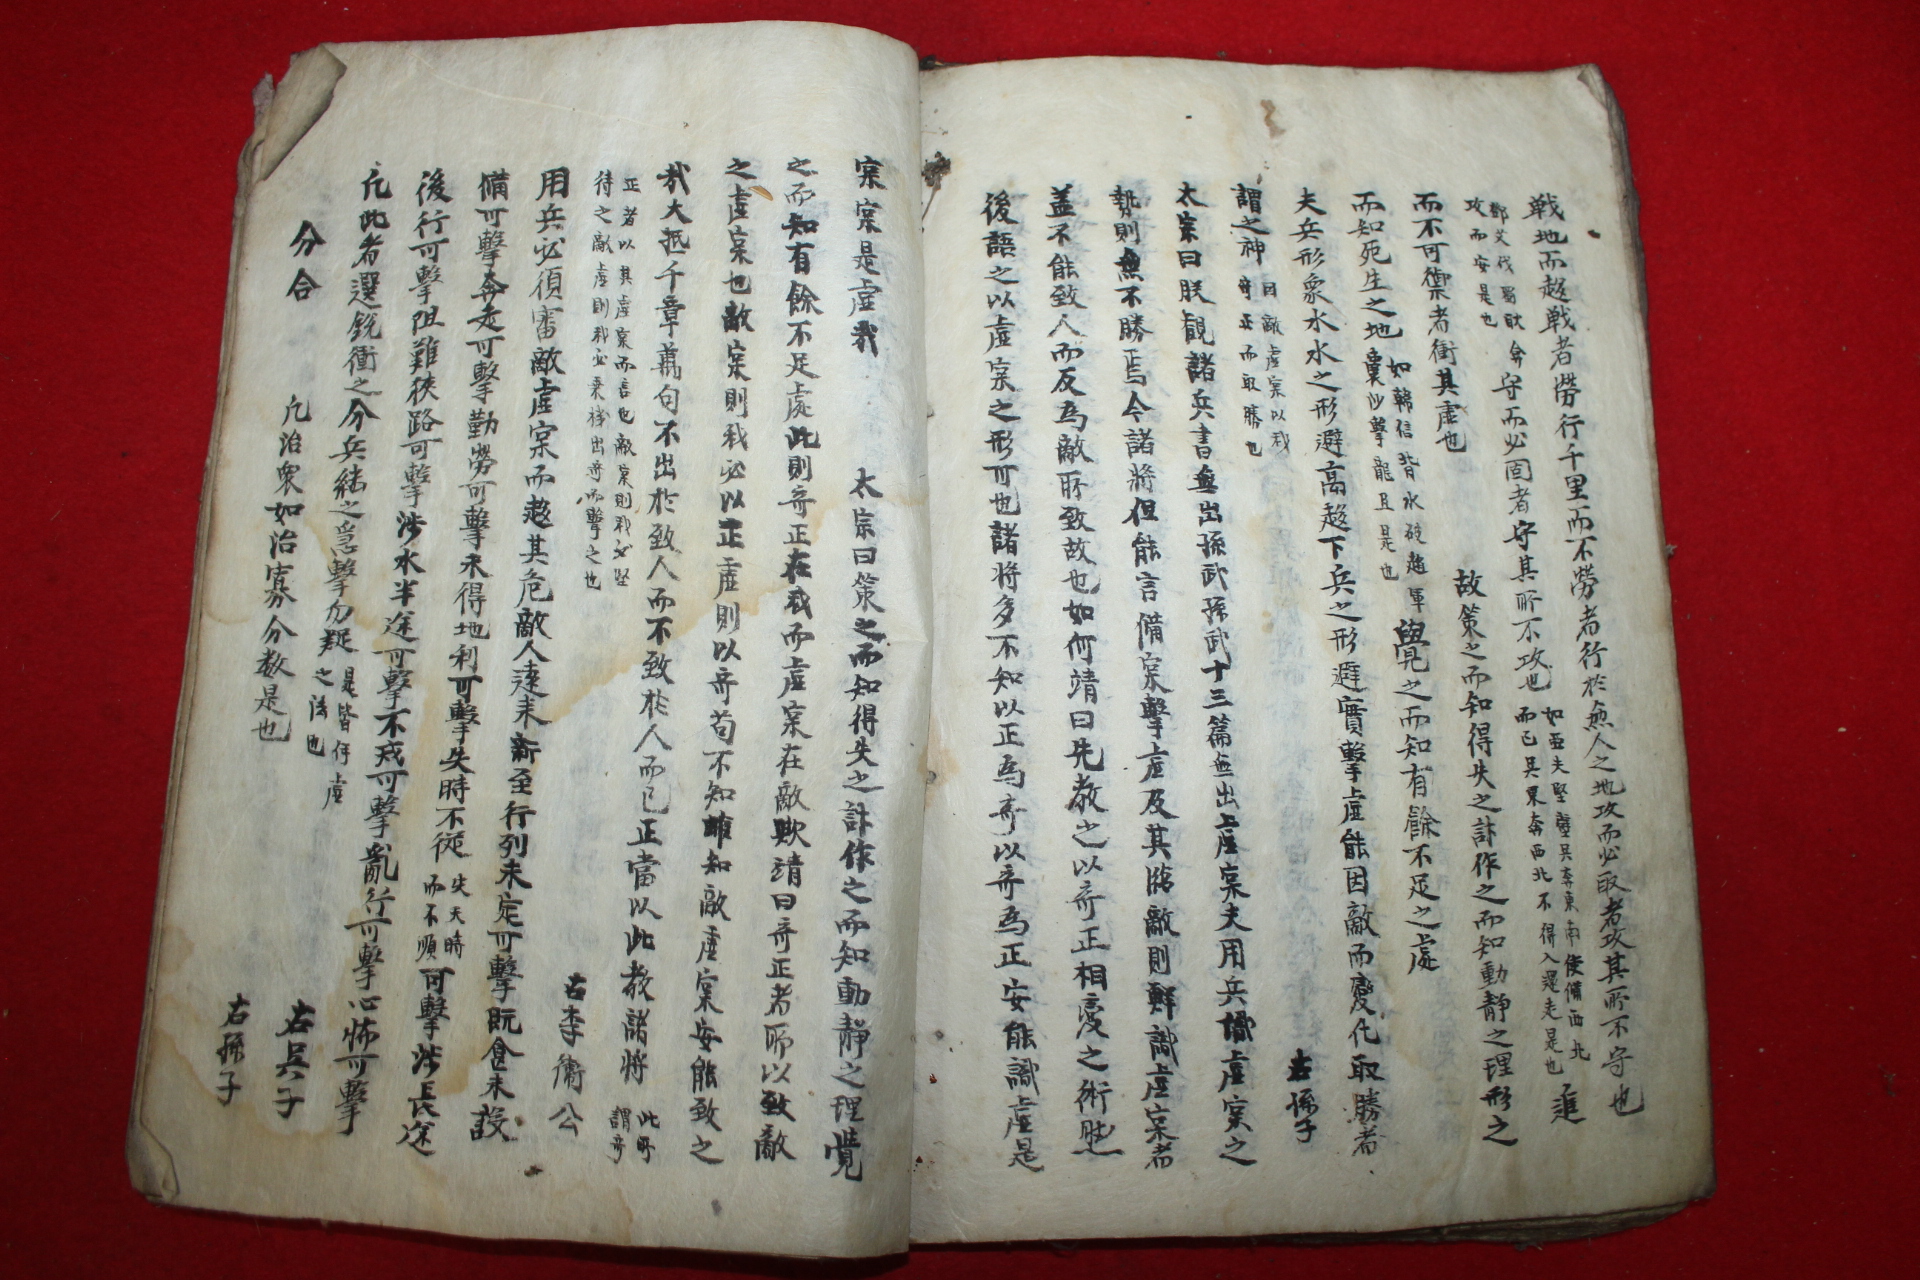 戦地而趍戦者勞行千里而不勞者行於無人之地攻而必取者攻其所不守也
鄧艾伐蜀耿弇
攻而安是也
守而必固者守其所不攻也
如亜夫堅壁吴奔東南使備西北
而已吴果奔西北不得入遁走是也
進
而不可禦者衝其虚也
故策之而知得失之計作之而知動静之理形之
而知死生之地
如韓信背水破趙軍
囊沙擊龍且是也
與見之而知有餘不足之處
夫兵形象水水之形避高趍下兵之形避實擊虚能因敵而變化取勝者
謂之神
因敵虚宲以我
奇正而取勝也
右孫子
太宗曰朕観諸兵書無出孫武孫武十三篇無出虚宲夫用兵識虚宲之
㔟則無不勝焉今諸將但能言備宲擊虚及其臨敵則鮮識虚宲者
盖不能致人而反為敵所致故也如何靖曰先教之以奇正相變之術然
後語之以虚宲之形可也諸將多不知以正為奇以奇為正安能識虚是
宲宲是虚哉
太宗曰策之而知得失之計作之而知動静之理覺
之而知有餘不足處此則奇正在我而虚宲在敵歟靖曰奇正者所以致敵
之虚宲也敵宲則我必以正虚則以奇苟不知雖知敵虚宲安能致之
哉大抵千章萬句不出於致人而不致於人而已正當以此教諸將
此所
謂奇
正者以其虚宲而言也敵宲則我必堅
待之敵虚則我必乗機出奇而擊之也
右李衛公
用兵必須審敵虚宲而趍其危敵人遠来新至行列未定可擊既食未設
備可擊奔走可擊勤勞可擊未得地利可擊失時不從
失天時
而不順
可擊涉長途
後行可擊阻難狹路可擊涉水半途可擊不戎可擊亂行可擊心怖可擊
凡此者選銳衝之分兵繼之急擊勿疑
是皆何虚
之法也
右吴子
分合
凡治衆如治寡分数是也
右孫子